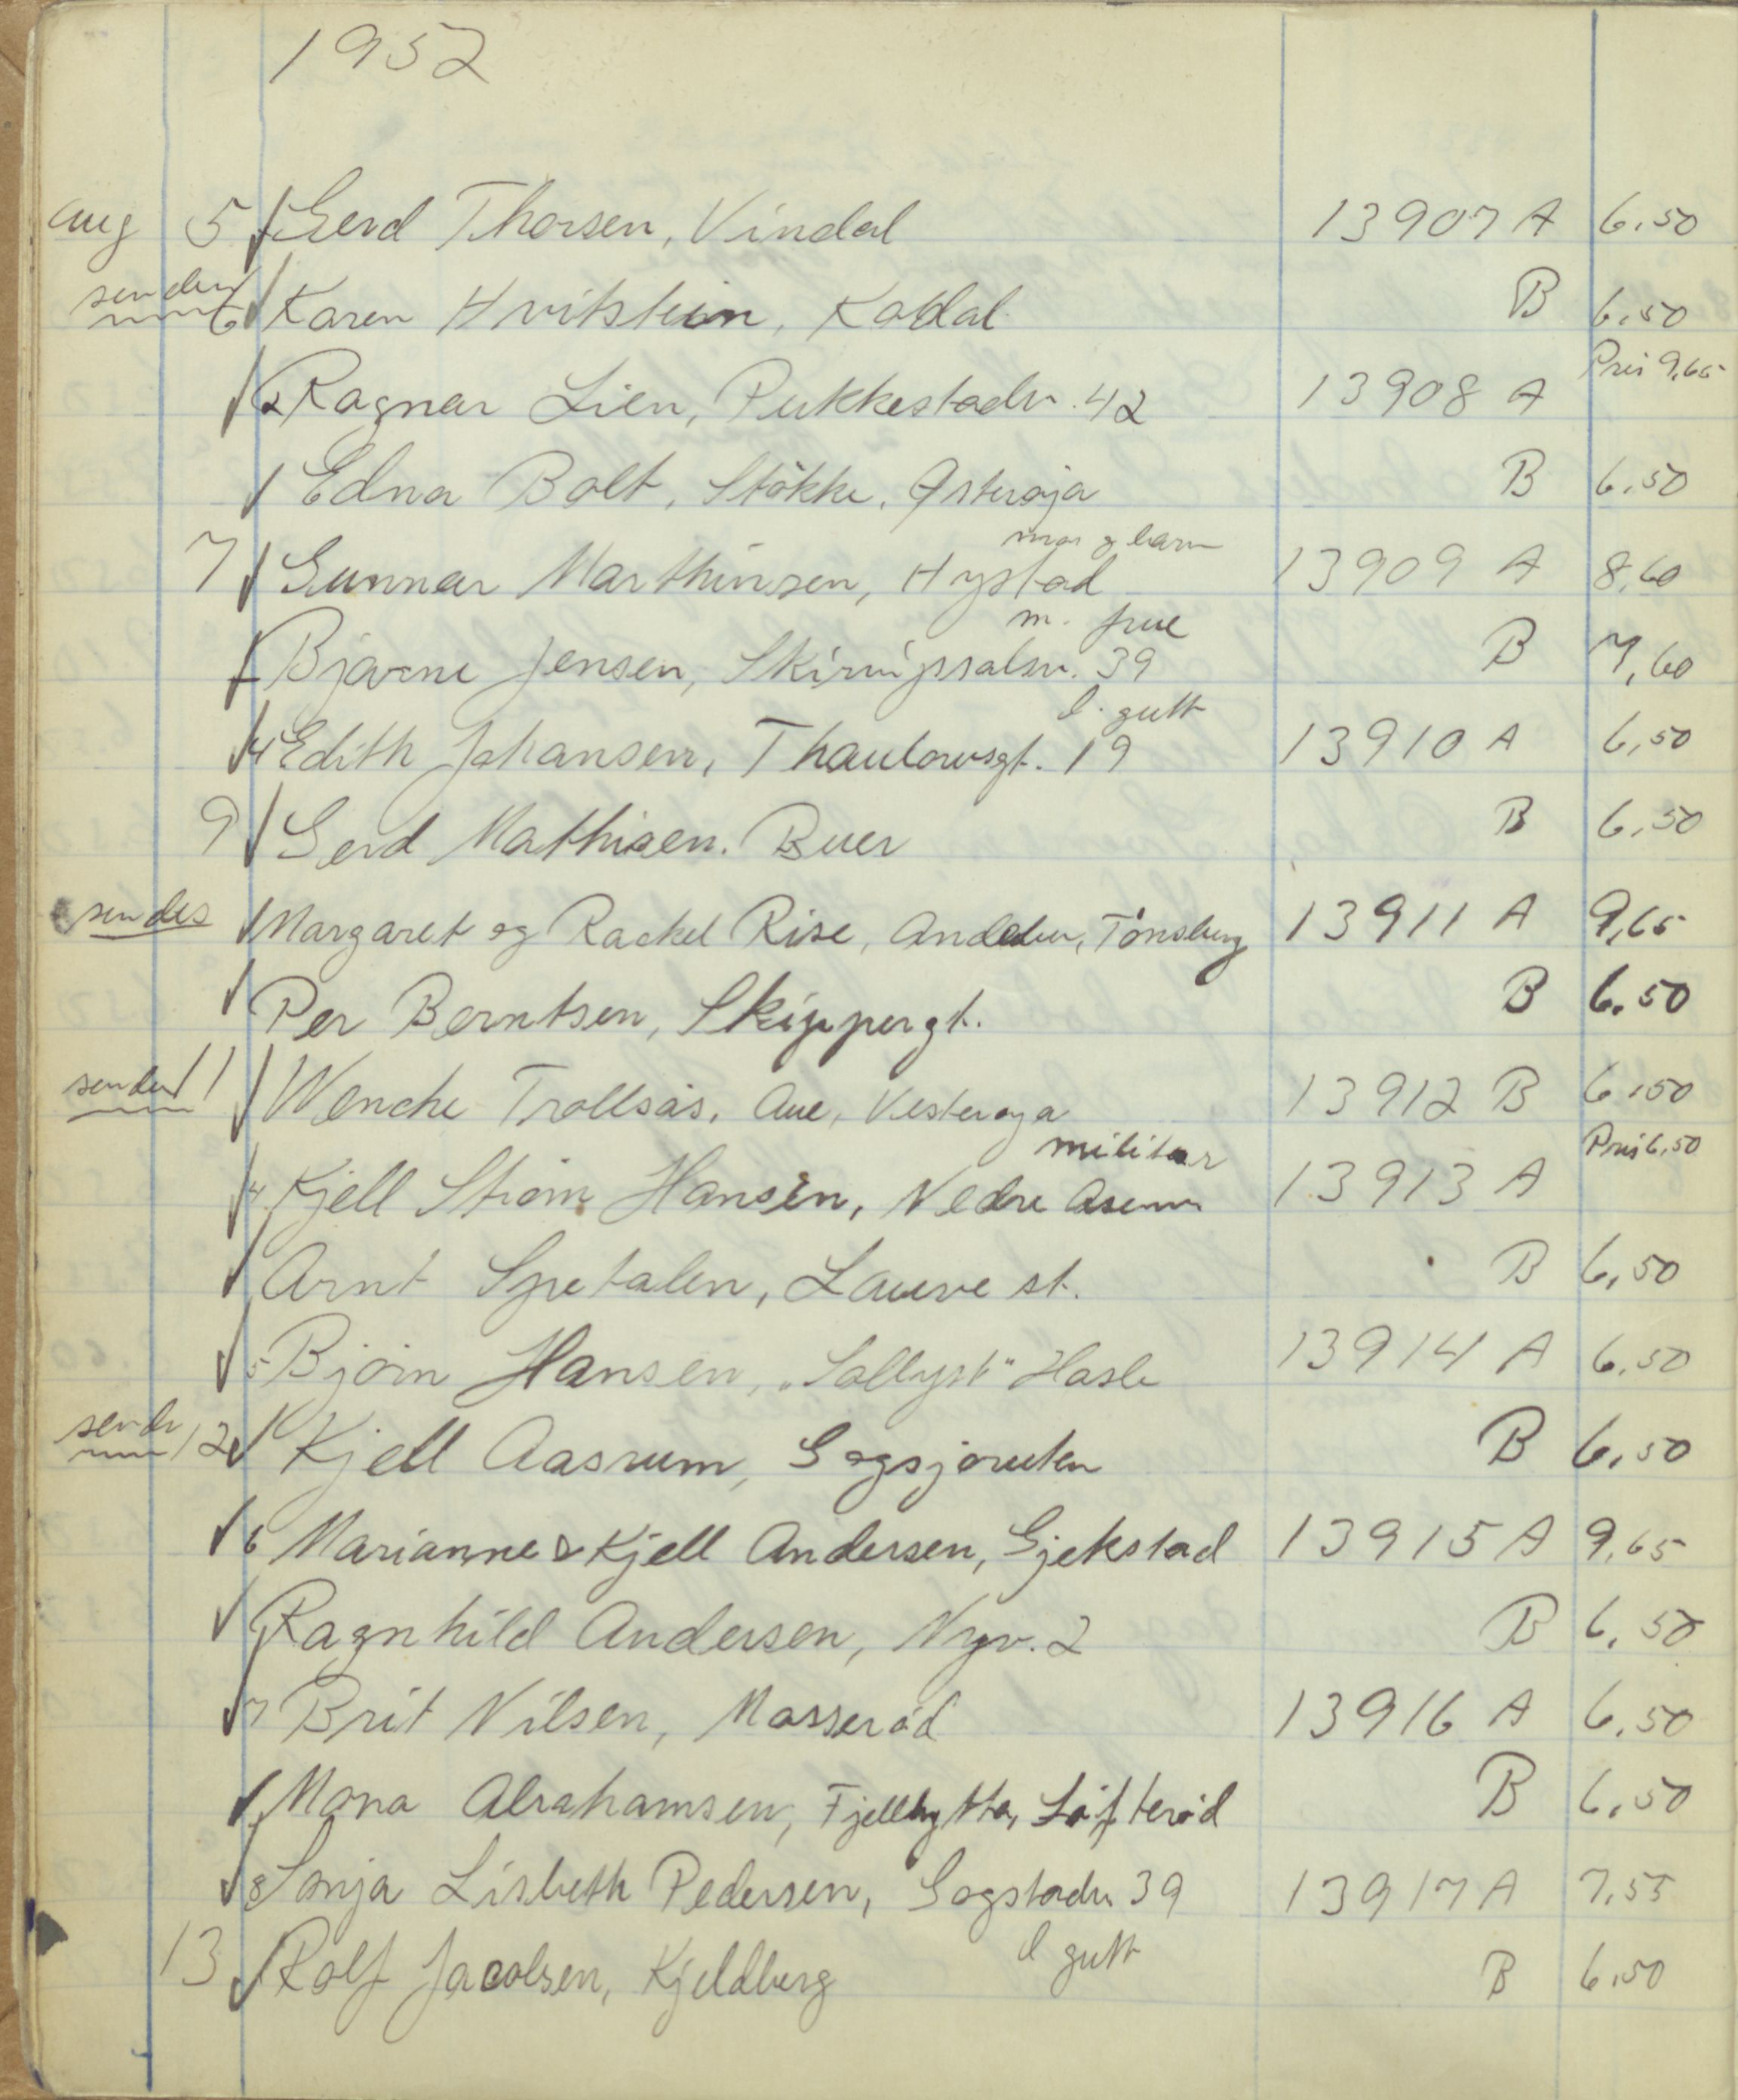 1952
aug 5 Gerd Thorsen, Vindal 13907 A 6.50
sendes
6 Karen Hvitstein, Kodal B 6.50
2 Ragnar Lien, Pukkestadv. 42 13908 A Pris 9,65
Edna Bolt, Stökke, Österøja B 6.50
mor og barn
7 Gunnar Marthinsen, Hystad 13909 A 8,60
m. frue
Bjarne Jensen, Skiringssalsv. 39 B 7,60
l. gutt
4 Edith Johansen, Thaulowsgt. 19 13910 A 6,50
9 Gerd Mathisen. Buer B 6,50
sendes Margaret og Rackel Rise, Andebu, Tönsberg 13911 A 9,65
Per Berntsen, Skippergt. B 6.50
sendes 11 Wenche Trollsås, Aue, Vesterøya 13912 B 6,50
militær
4 Kjell Strøm Hansen, Nedre Åsenv 13913 A Pris 6,50
Arnt Spetalen, Lauve st. B 6,50
5 Bjørn Hansen, "Sollyst" Hasle 13914 A 6,50
sendes 12 Kjell Aasrum, Gogsjøruten B 6,50
6 Marianne & Kjell Andersen, Gjekstad 13915 A 9,65
Ragnhild Andersen, Nyv. 2 B 6,50
7 Brit Nilsen, Massерød 13916 A 6,50
Mona Abrahamsen, Fjellhytta, Löfterød B 6,50
8 Sonja Lisbeth Pedersen, Gogstadv 39 13917 A 7,55
l gutt
13 Rolf Jacobsen, Kjeldberg B 6,50